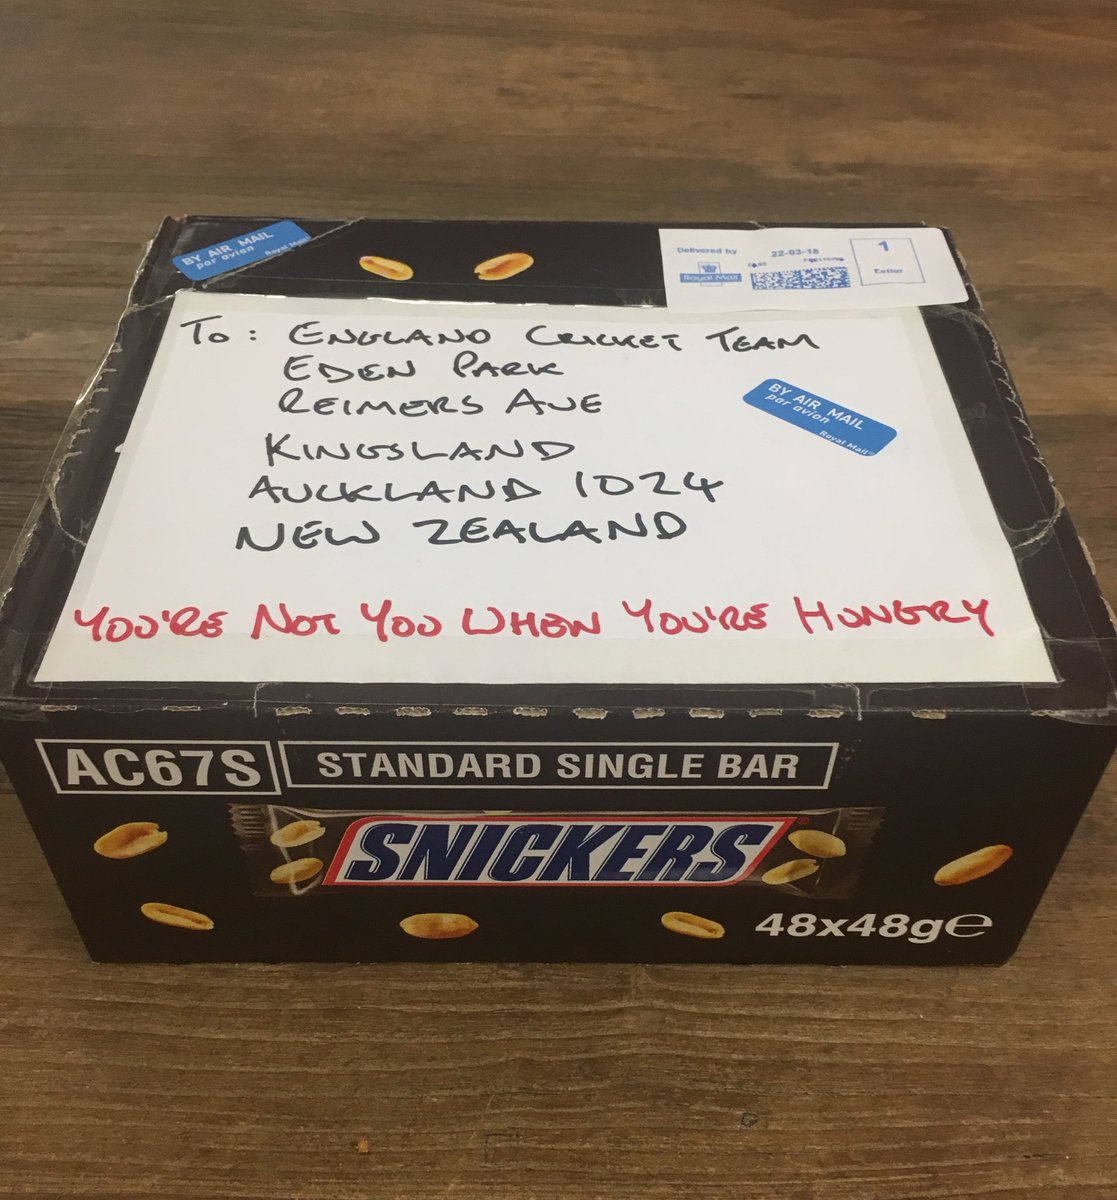 BY AIR MAIL
par avion
Royal Mail
Delivered by
Royal Mail
22-03-18
1
To: ENGLAND CRICKET TEAM
EDEN PARK
REIMERS AVE
KINGSLAND
AUCKLAND 1024
NEW ZEALAND
BY AIR MAIL
par avion
Royal Mail®
YOU'RE NOT YOU WHEN YOU'RE HUNGRY
AC67S
STANDARD SINGLE BAR
SNICKERS®
48x48g℮